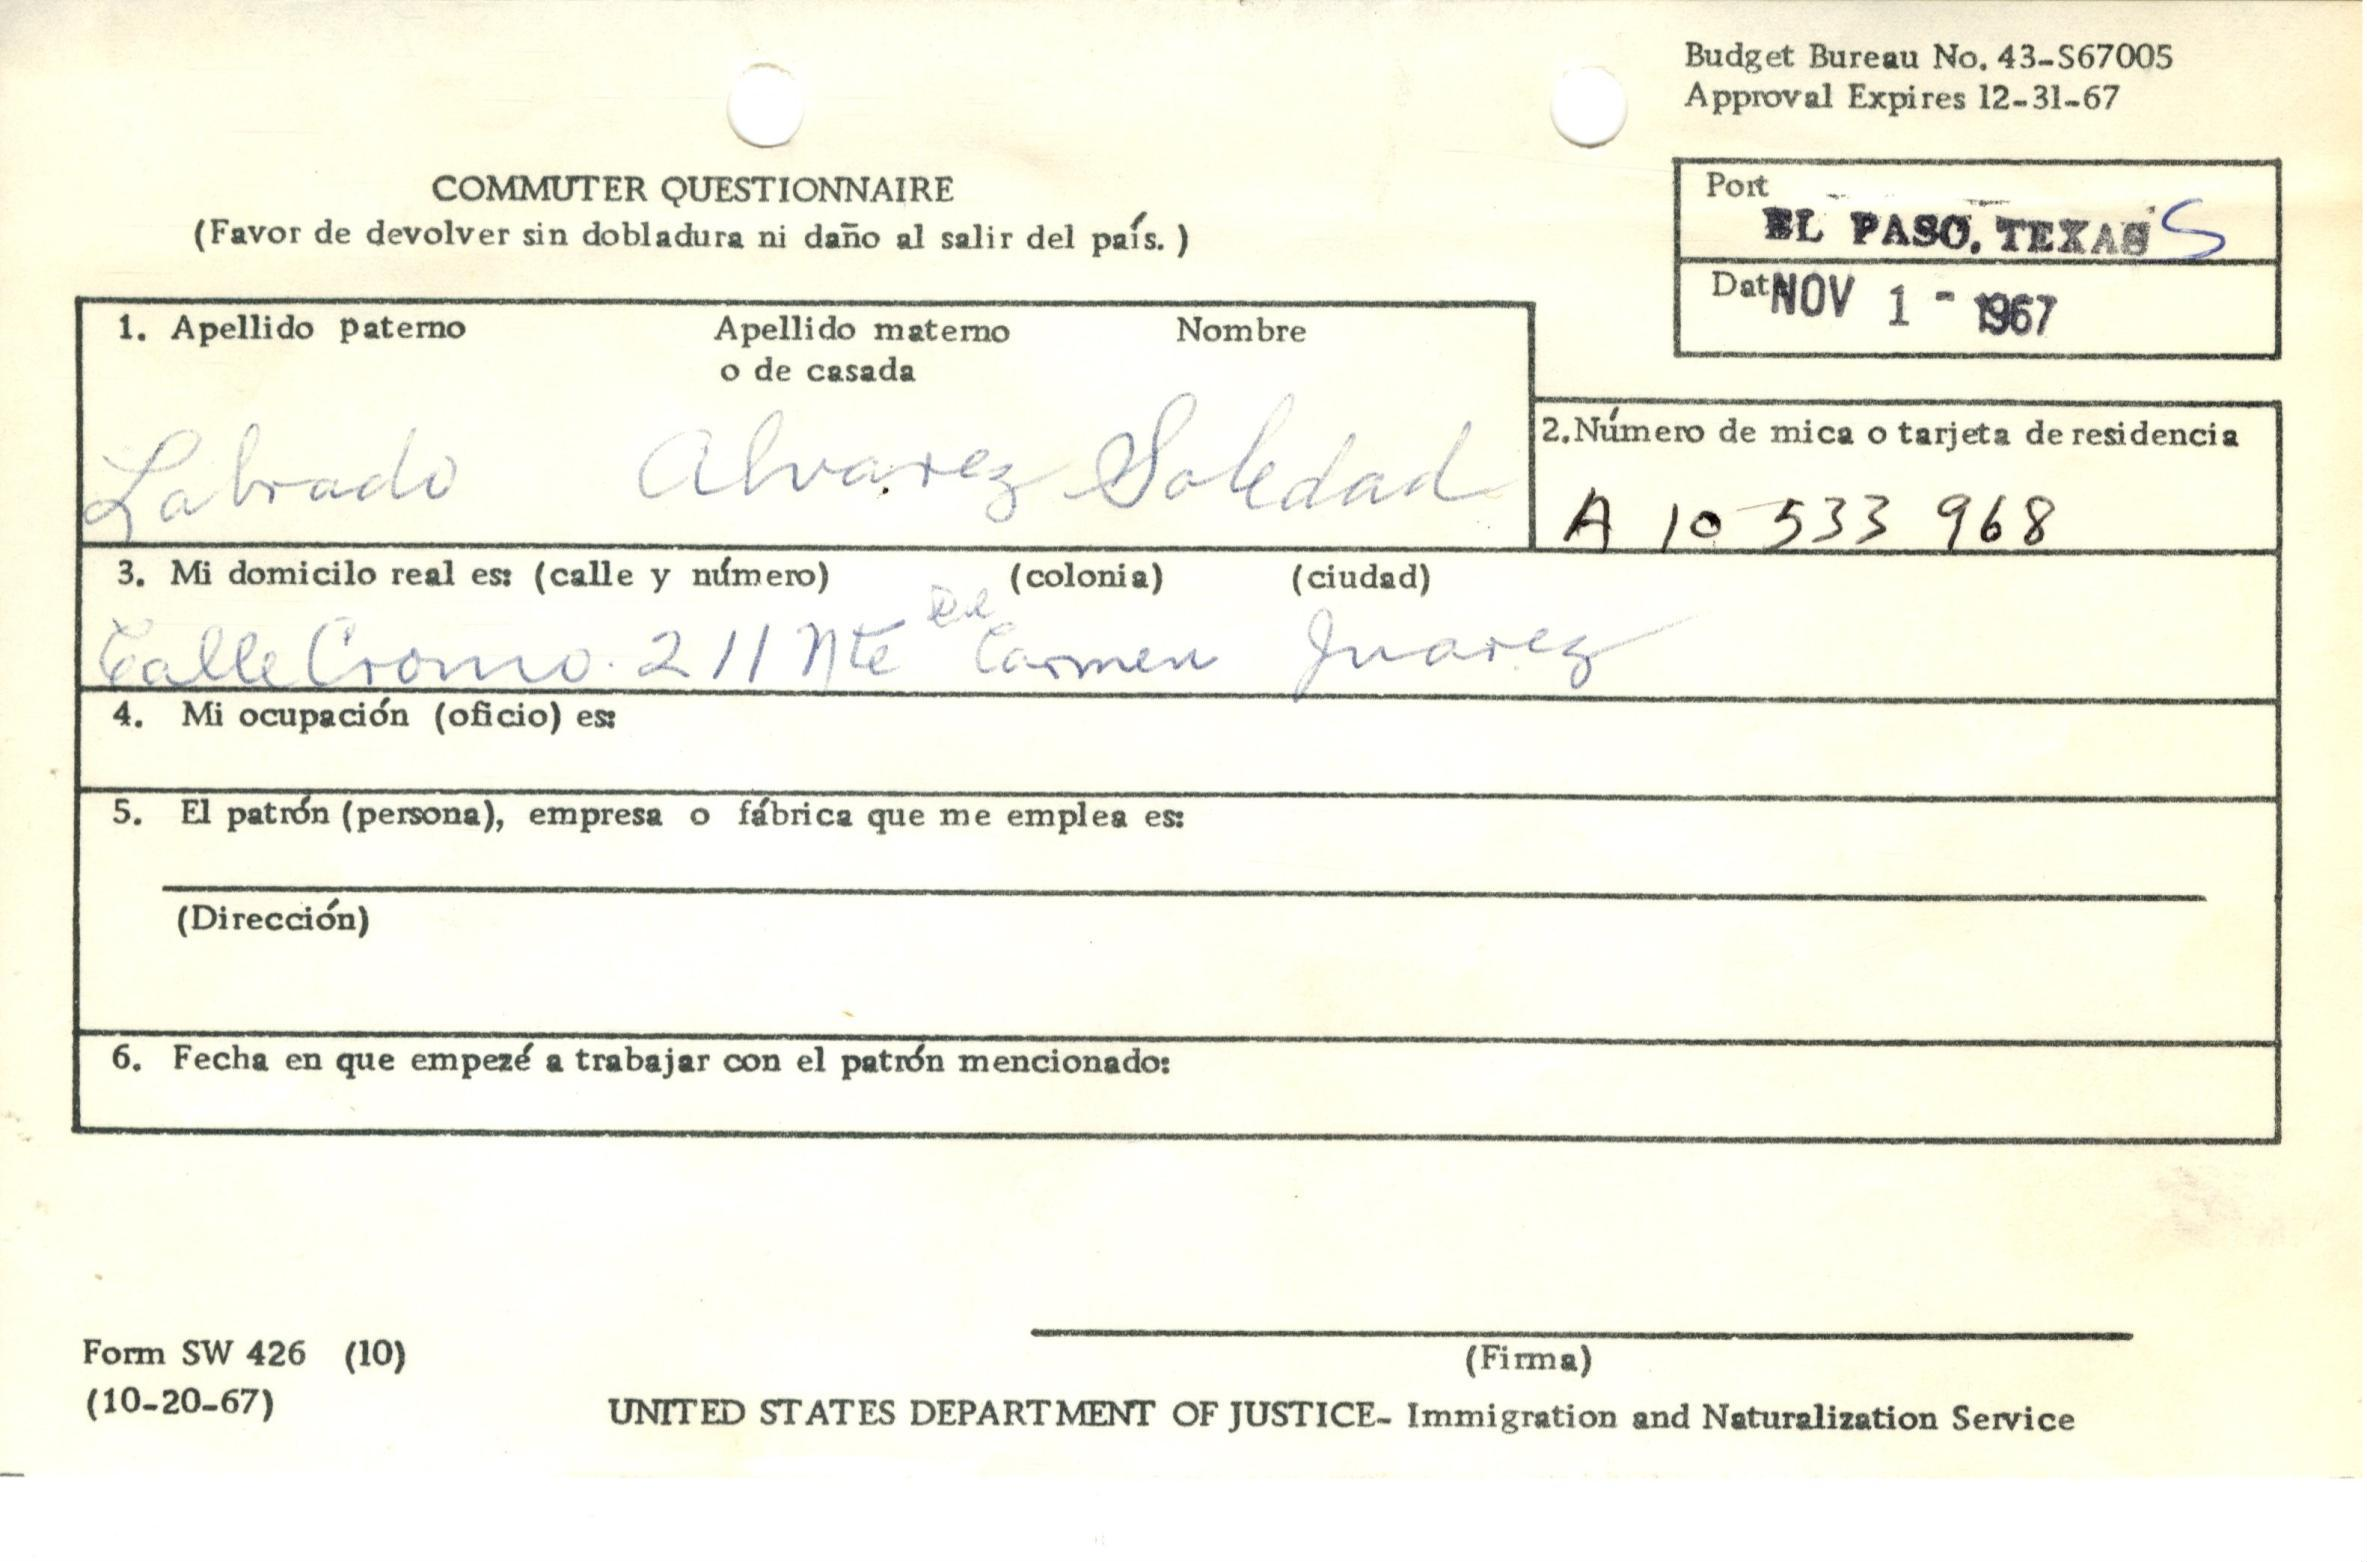 Budget Bureau No. 43-S67005
Approval Expires 12-31-67
COMMUTER QUESTIONNAIRE
(Favor de devolver sin dobladura ni daño al salir del país. )
Port
EL PASO, TEXAS S
Date NOV 1 - 1967
1. Apellido paterno Apellido materno Nombre
o de casada
Labrado Alvarez Soledad
2. Número de mica o tarjeta de residencia
A 10 533 968
3. Mi domicilo real es: (calle y número) (colonia) (ciudad)
Calle Cromo. 211 Nte Del Carmen Juarez
4. Mi ocupación (oficio) es:
5. El patrón (persona), empresa o fábrica que me emplea es:
(Dirección)
6. Fecha en que empezé a trabajar con el patrón mencionado:
(Firma)
Form SW 426 (10)
(10-20-67)
UNITED STATES DEPARTMENT OF JUSTICE- Immigration and Naturalization Service